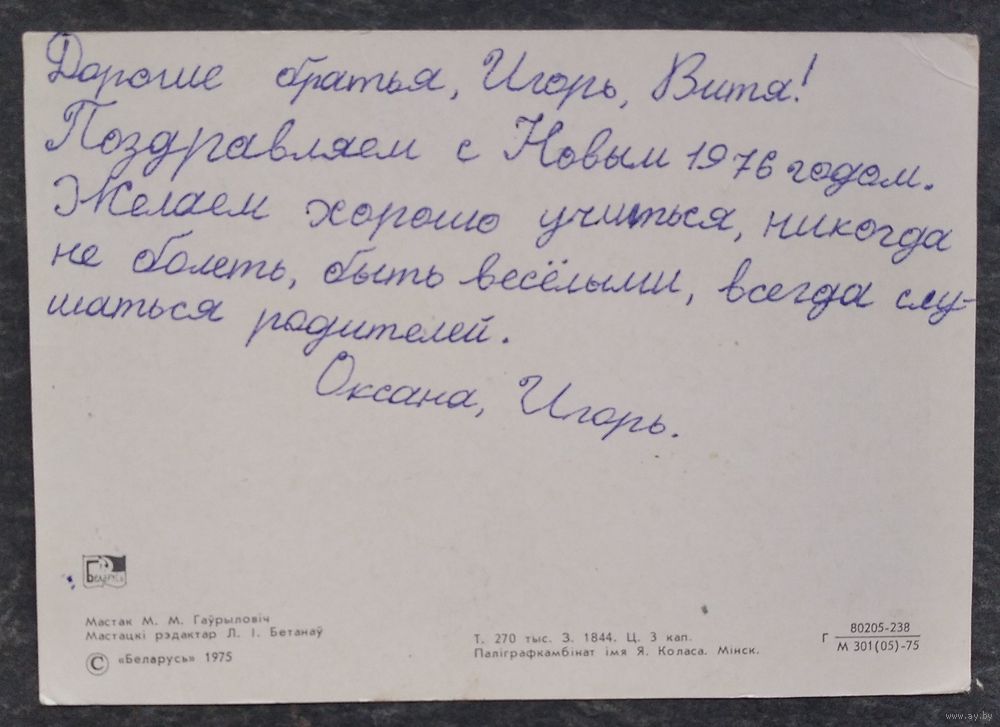 Дорогие братья, Игорь, Витя!
Поздравляем с Новым 1976 годом.
Желаем хорошо учиться, никогда
не болеть, быть весёлыми, всегда слу-
шаться родителей.
Оксана, Игорь.
Беларусь
Мастак М. М. Гаўрыловіч
Мастацкі рэдактар Л. І. Бетанаў
© «Беларусь» 1975
Т. 270 тыс. З. 1844. Ц. 3 кап.
Паліграфкамбінат імя Я. Коласа. Мінск.
Г 80205-238
М 301(05)-75
www.ay.by